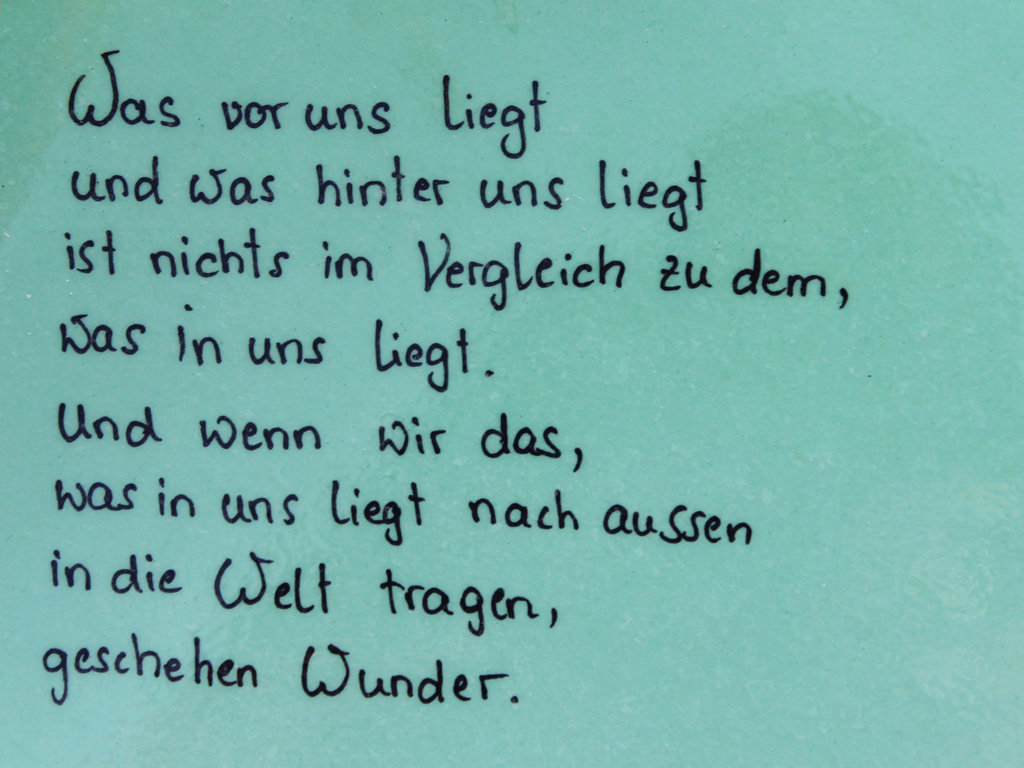 Was vor uns liegt
und was hinter uns liegt
ist nichts im Vergleich zu dem,
was in uns liegt.
Und wenn wir das,
was in uns liegt nach aussen
in die Welt tragen,
geschehen Wunder.